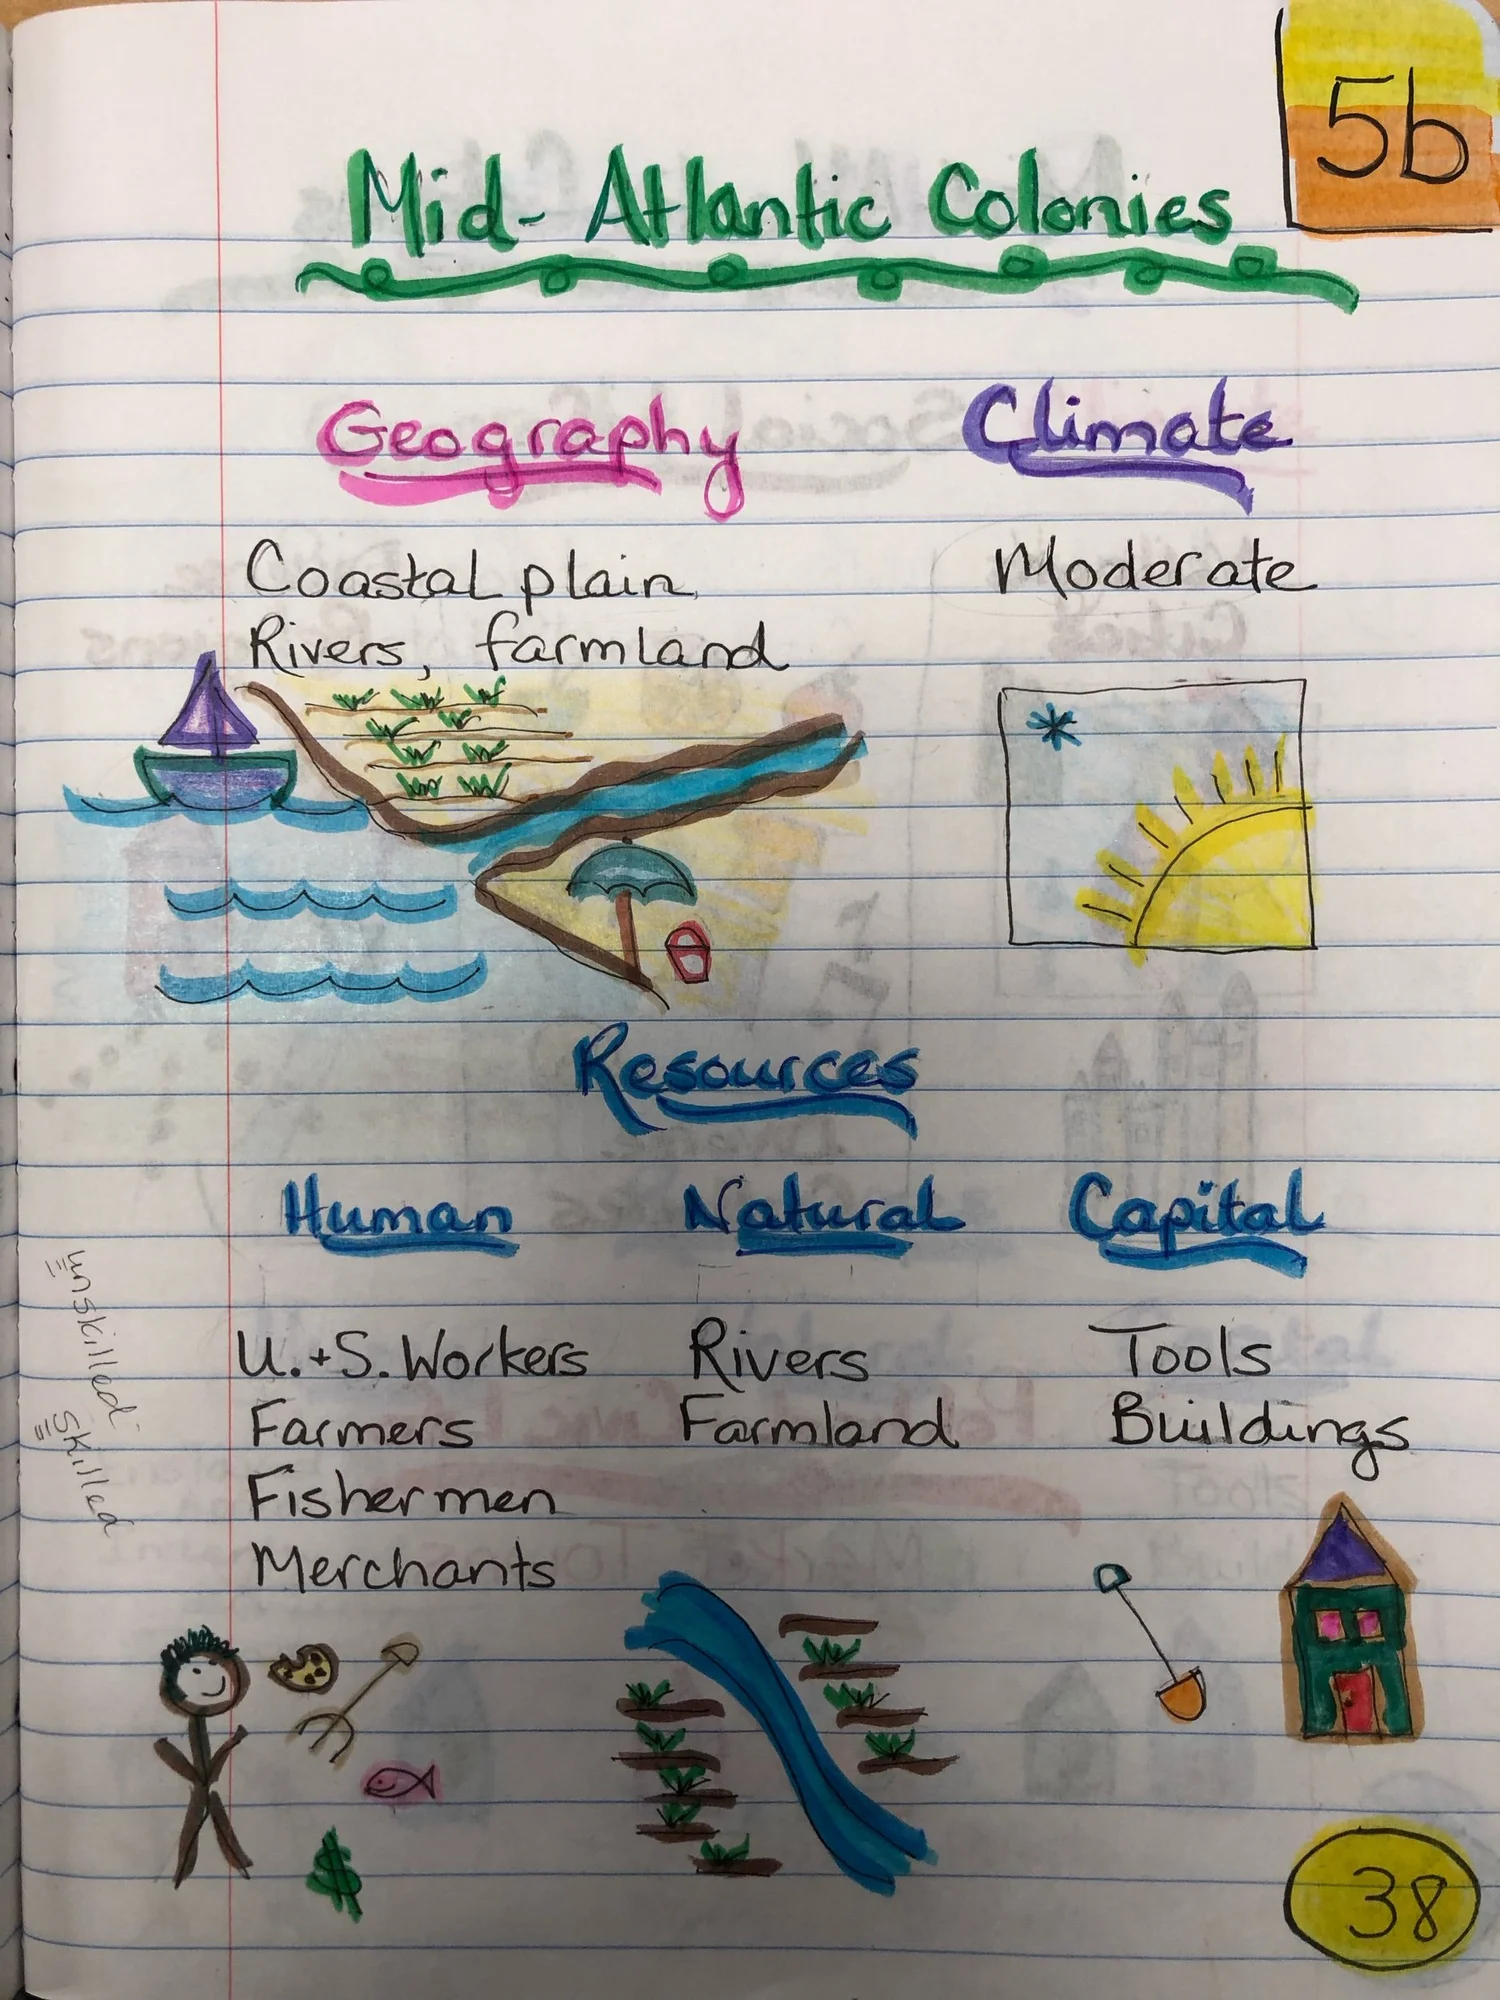 5b
Mid-Atlantic Colonies
Geography
Climate
Coastal plain
Rivers, farmland
Moderate
Resources
Human
Natural
Capital
U.+S. Workers
Farmers
Fishermen
Merchants
Rivers
Farmland
Tools
Buildings
Unskilled
Skilled
$
38